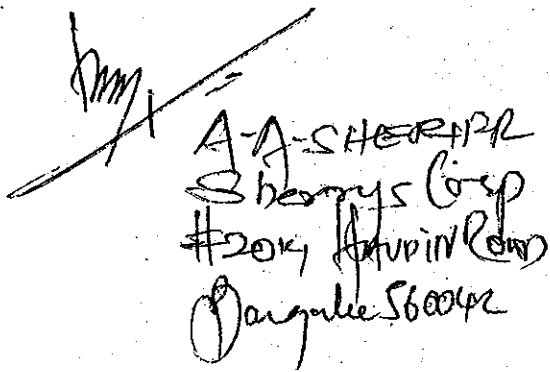 A-A-SHERIFF
Sherrys Corp
#204, Road
Bangalore 560042